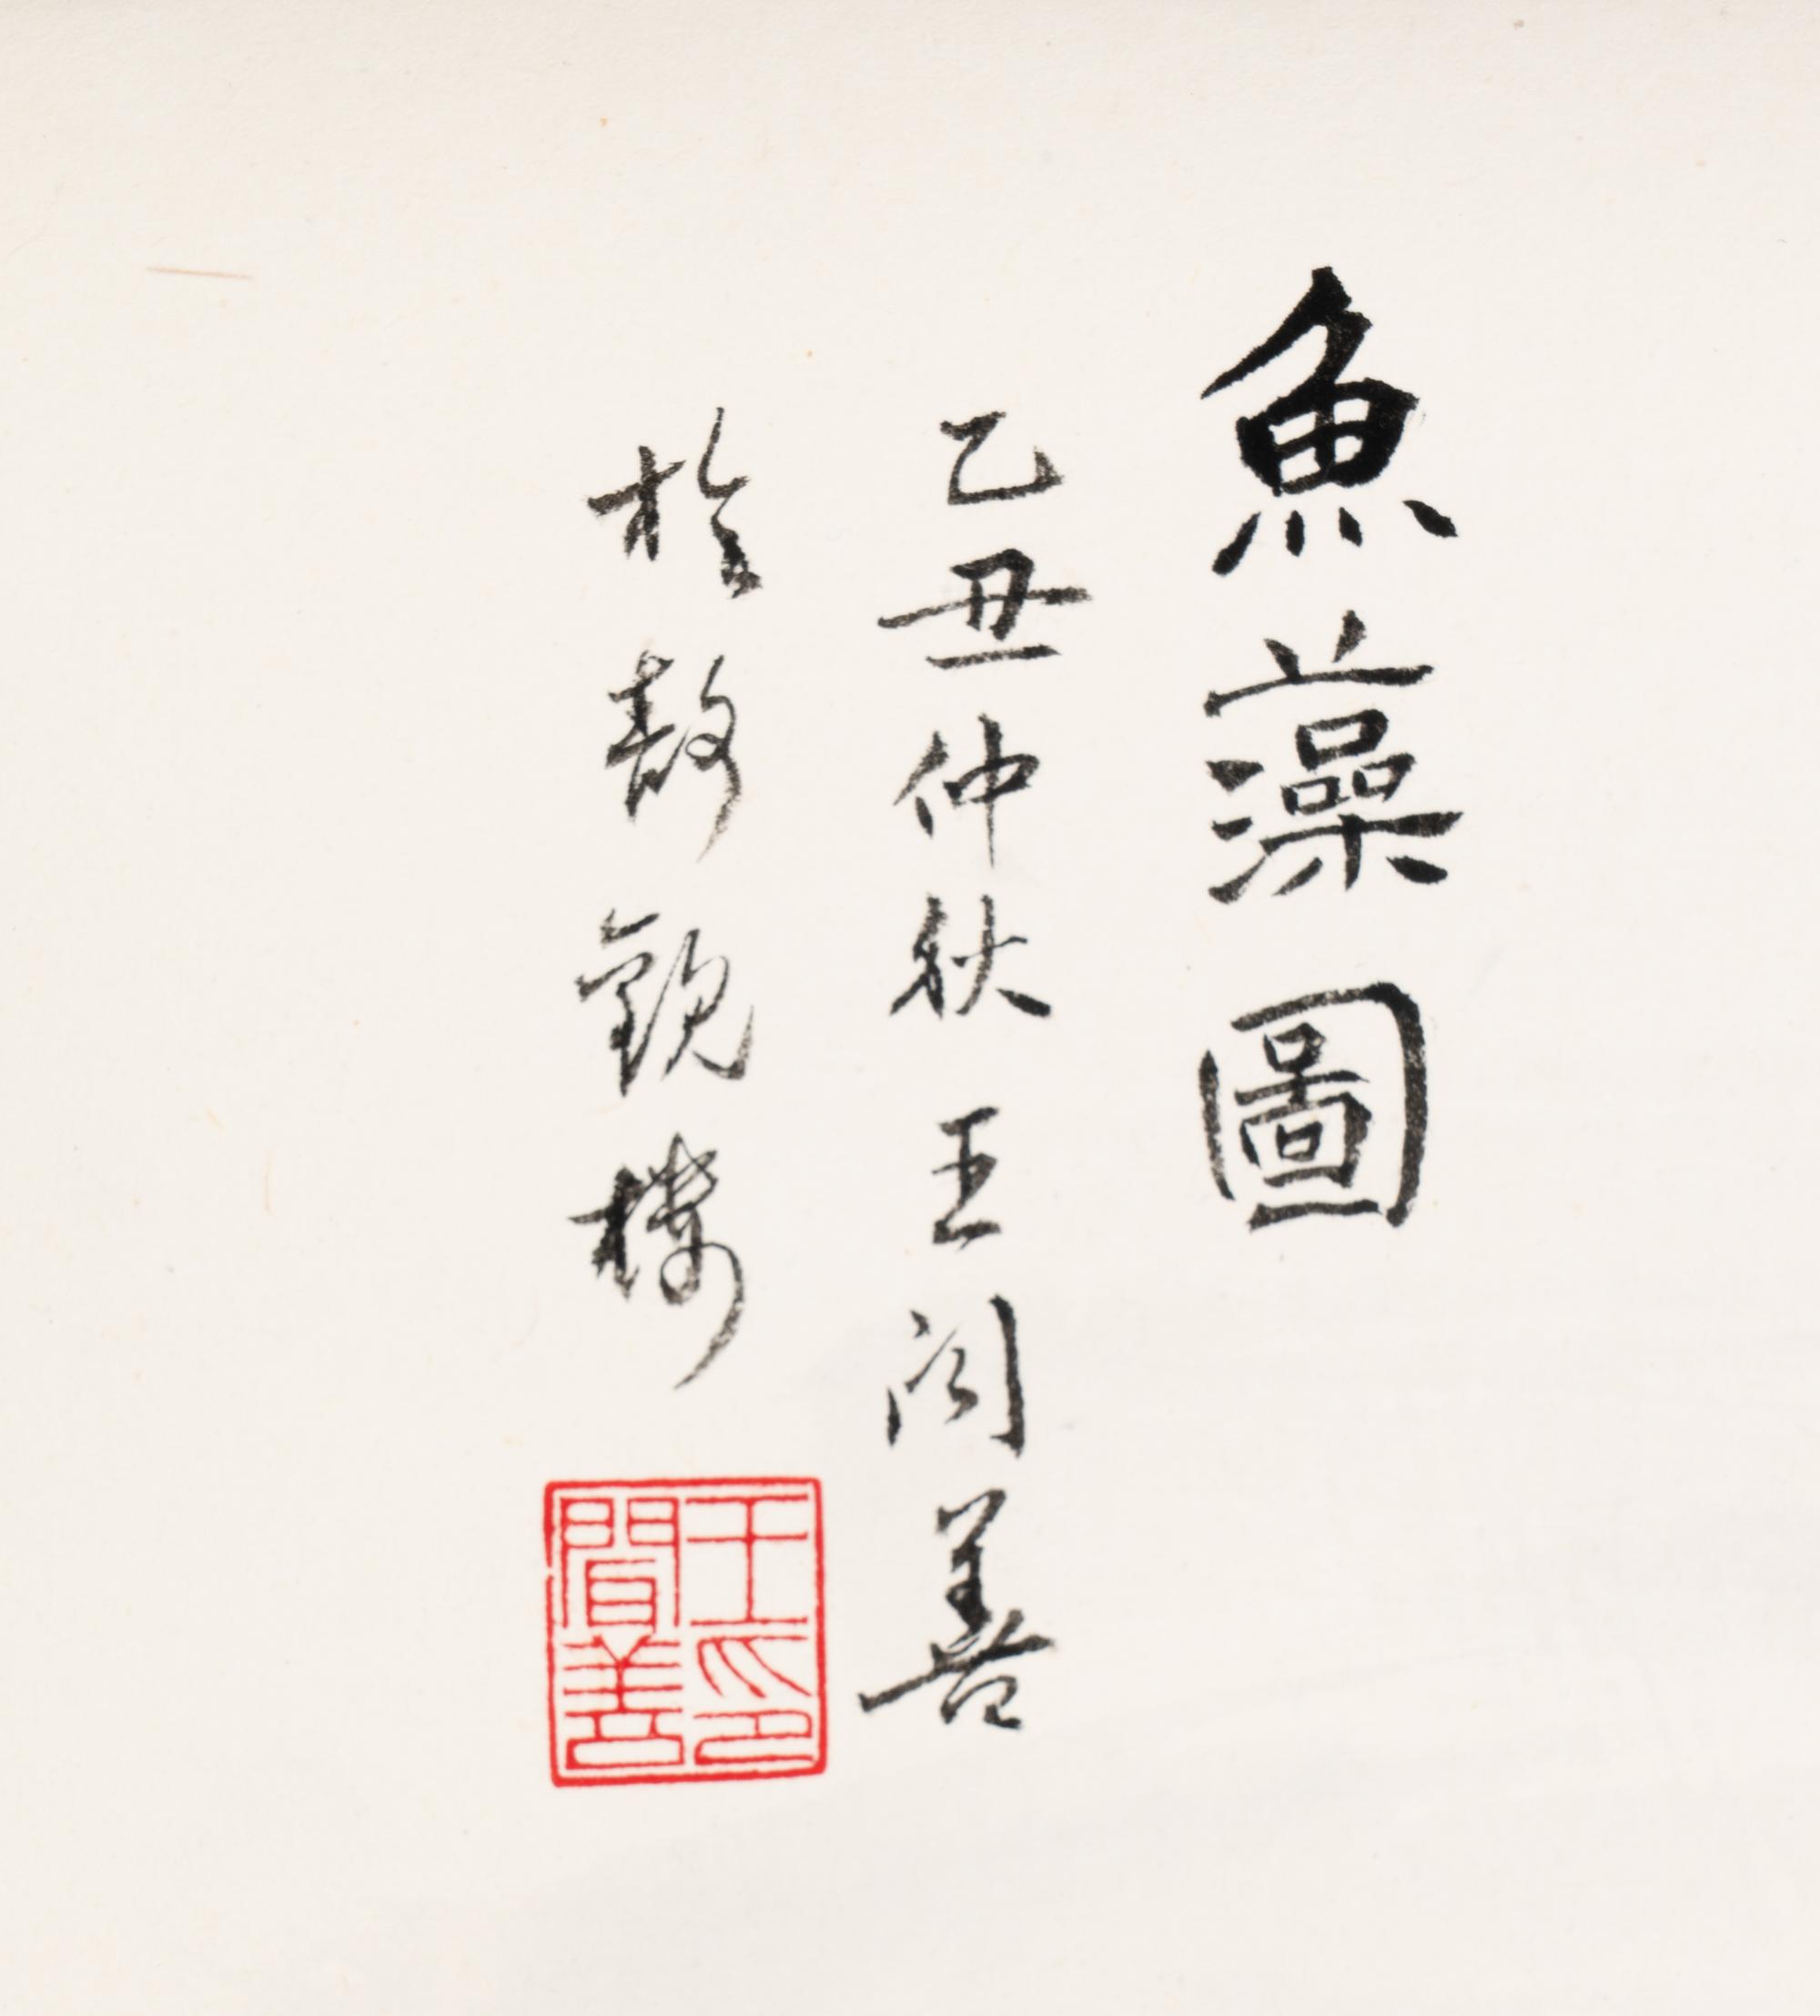 魚藻圖
乙丑仲秋王善
於觀樓
王印善